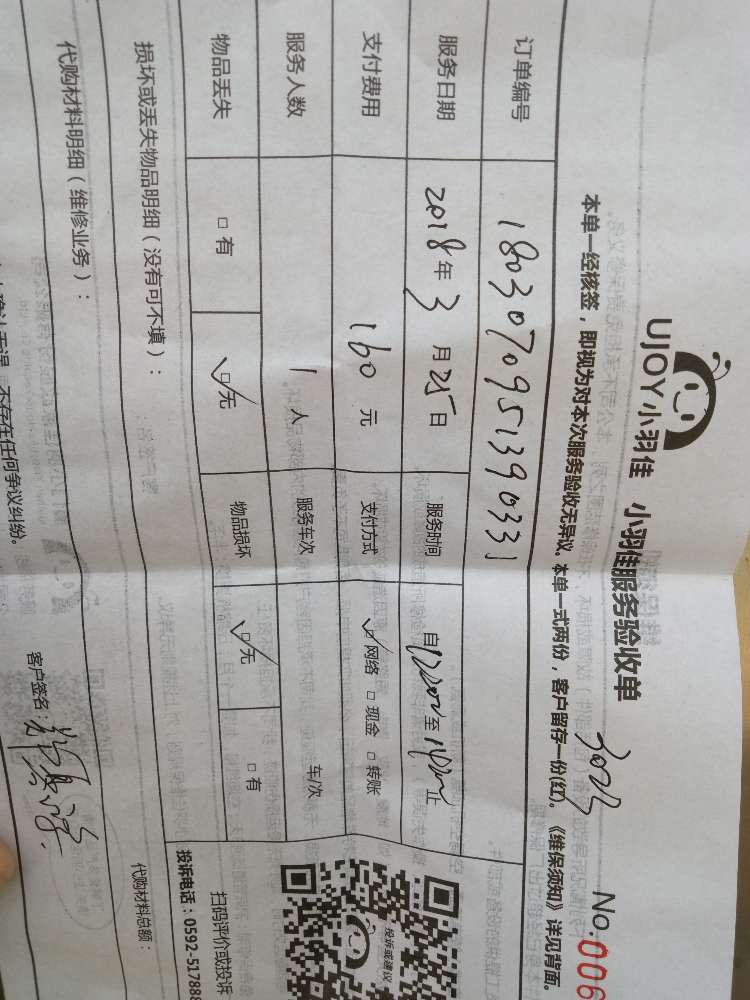 UJOY小羽佳 小羽佳服务验收单
3023
No.006
本单一经核签，即视为对本次服务验收无异议、本单一式两份，客户留存一份(红)。《维保须知》详见背面。
订单编号 180307095139033 1
服务日期 2018年3月25日 服务时间 自12:00至14:00止
支付费用 160元 支付方式 ☑网络 □现金 □转账
服务人数 1人 服务车次 车/次
物品丢失 □有 ☑无 物品损坏 ☑无 □有
损坏或丢失物品明细（没有可不填）：
代购材料明细（维修业务）：
代购材料总额：
投诉或建议
扫码评价或投诉
投诉电话：0592-517888
不存在任何争议纠纷。
客户签名：